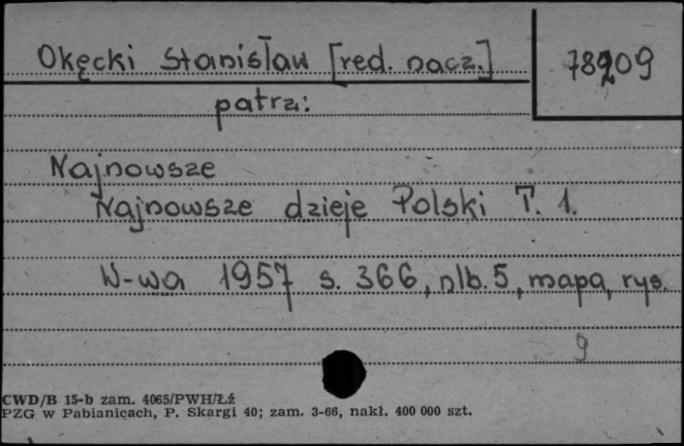 Okęcki Stanisław [red. nacz.]
78909
patrz:
Najnowsze
Najnowsze dzieje Polski T. 1.
W-wa 1957 s. 366, nlb. 5, mapa, rys.
9
CWD/B 15-b zam. 4065/PWH/Łź
PZG w Pabianicach, P. Skargi 40; zam. 3-66, nakł. 400 000 szt.